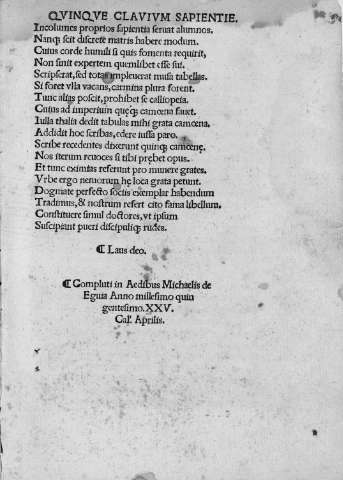 QVINQVE CLAVIVM SAPIENTIE.
Incolumes proprios sapientia seruat alumnos.
Nanq; scit discrete matris habere modum.
Cuius corde humili si quis fomenta requirit,
Non sinit expertem quemlibet esse sui.
Scripserat, sed totas impleuerat musa tabellas.
Si foret vlla vacans, carmina plura forent.
Tunc alias poscit, prohibet se calliopeia.
Cuius ad imperium quęq; camœna fauet.
Iussa thalia dedit tabulas mihi grata camœna.
Addidit hoc scribas, edere iussa paro.
Scribe recedentes dixerunt quinq; camœnę.
Nos iterum reuoces si tibi prębet opus.
Et tunc eximias referunt pro munere grates.
Vrbe ergo nemorum hę loca grata petunt.
Dogmate perfecto sociis exemplar habendum
Tradimus, & nostrum refert cito fama libellum.
Constituere simul doctores, vt ipsum
Suscipiant pueri discipuliq; rudes.
¶ Laus deo.
¶ Compluti in Aedibus Michaelis de
Eguia Anno millesimo quin
gentesimo. XXV.
Cal. Aprilis.